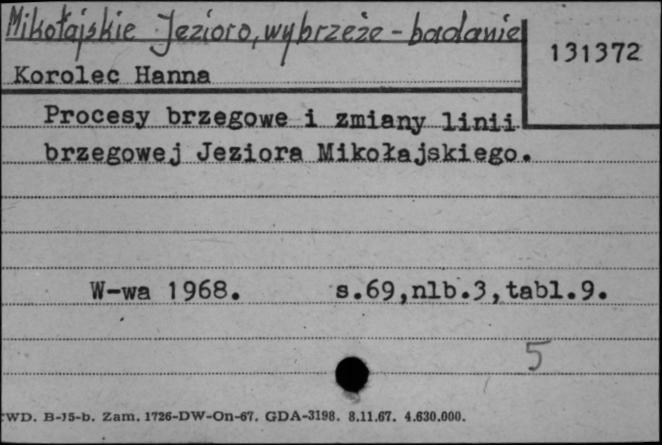 Mikołajskie Jezioro, wybrzeże - badanie
131372
Korolec Hanna
Procesy brzegowe i zmiany linii
brzegowej Jeziora Mikołajskiego.
W-wa 1968. s.69,nlb.3,tabl.9.
5
WD. B-15-b. Zam. 1726-DW-On-67. GDA-3198. 8.11.67. 4.630.000.